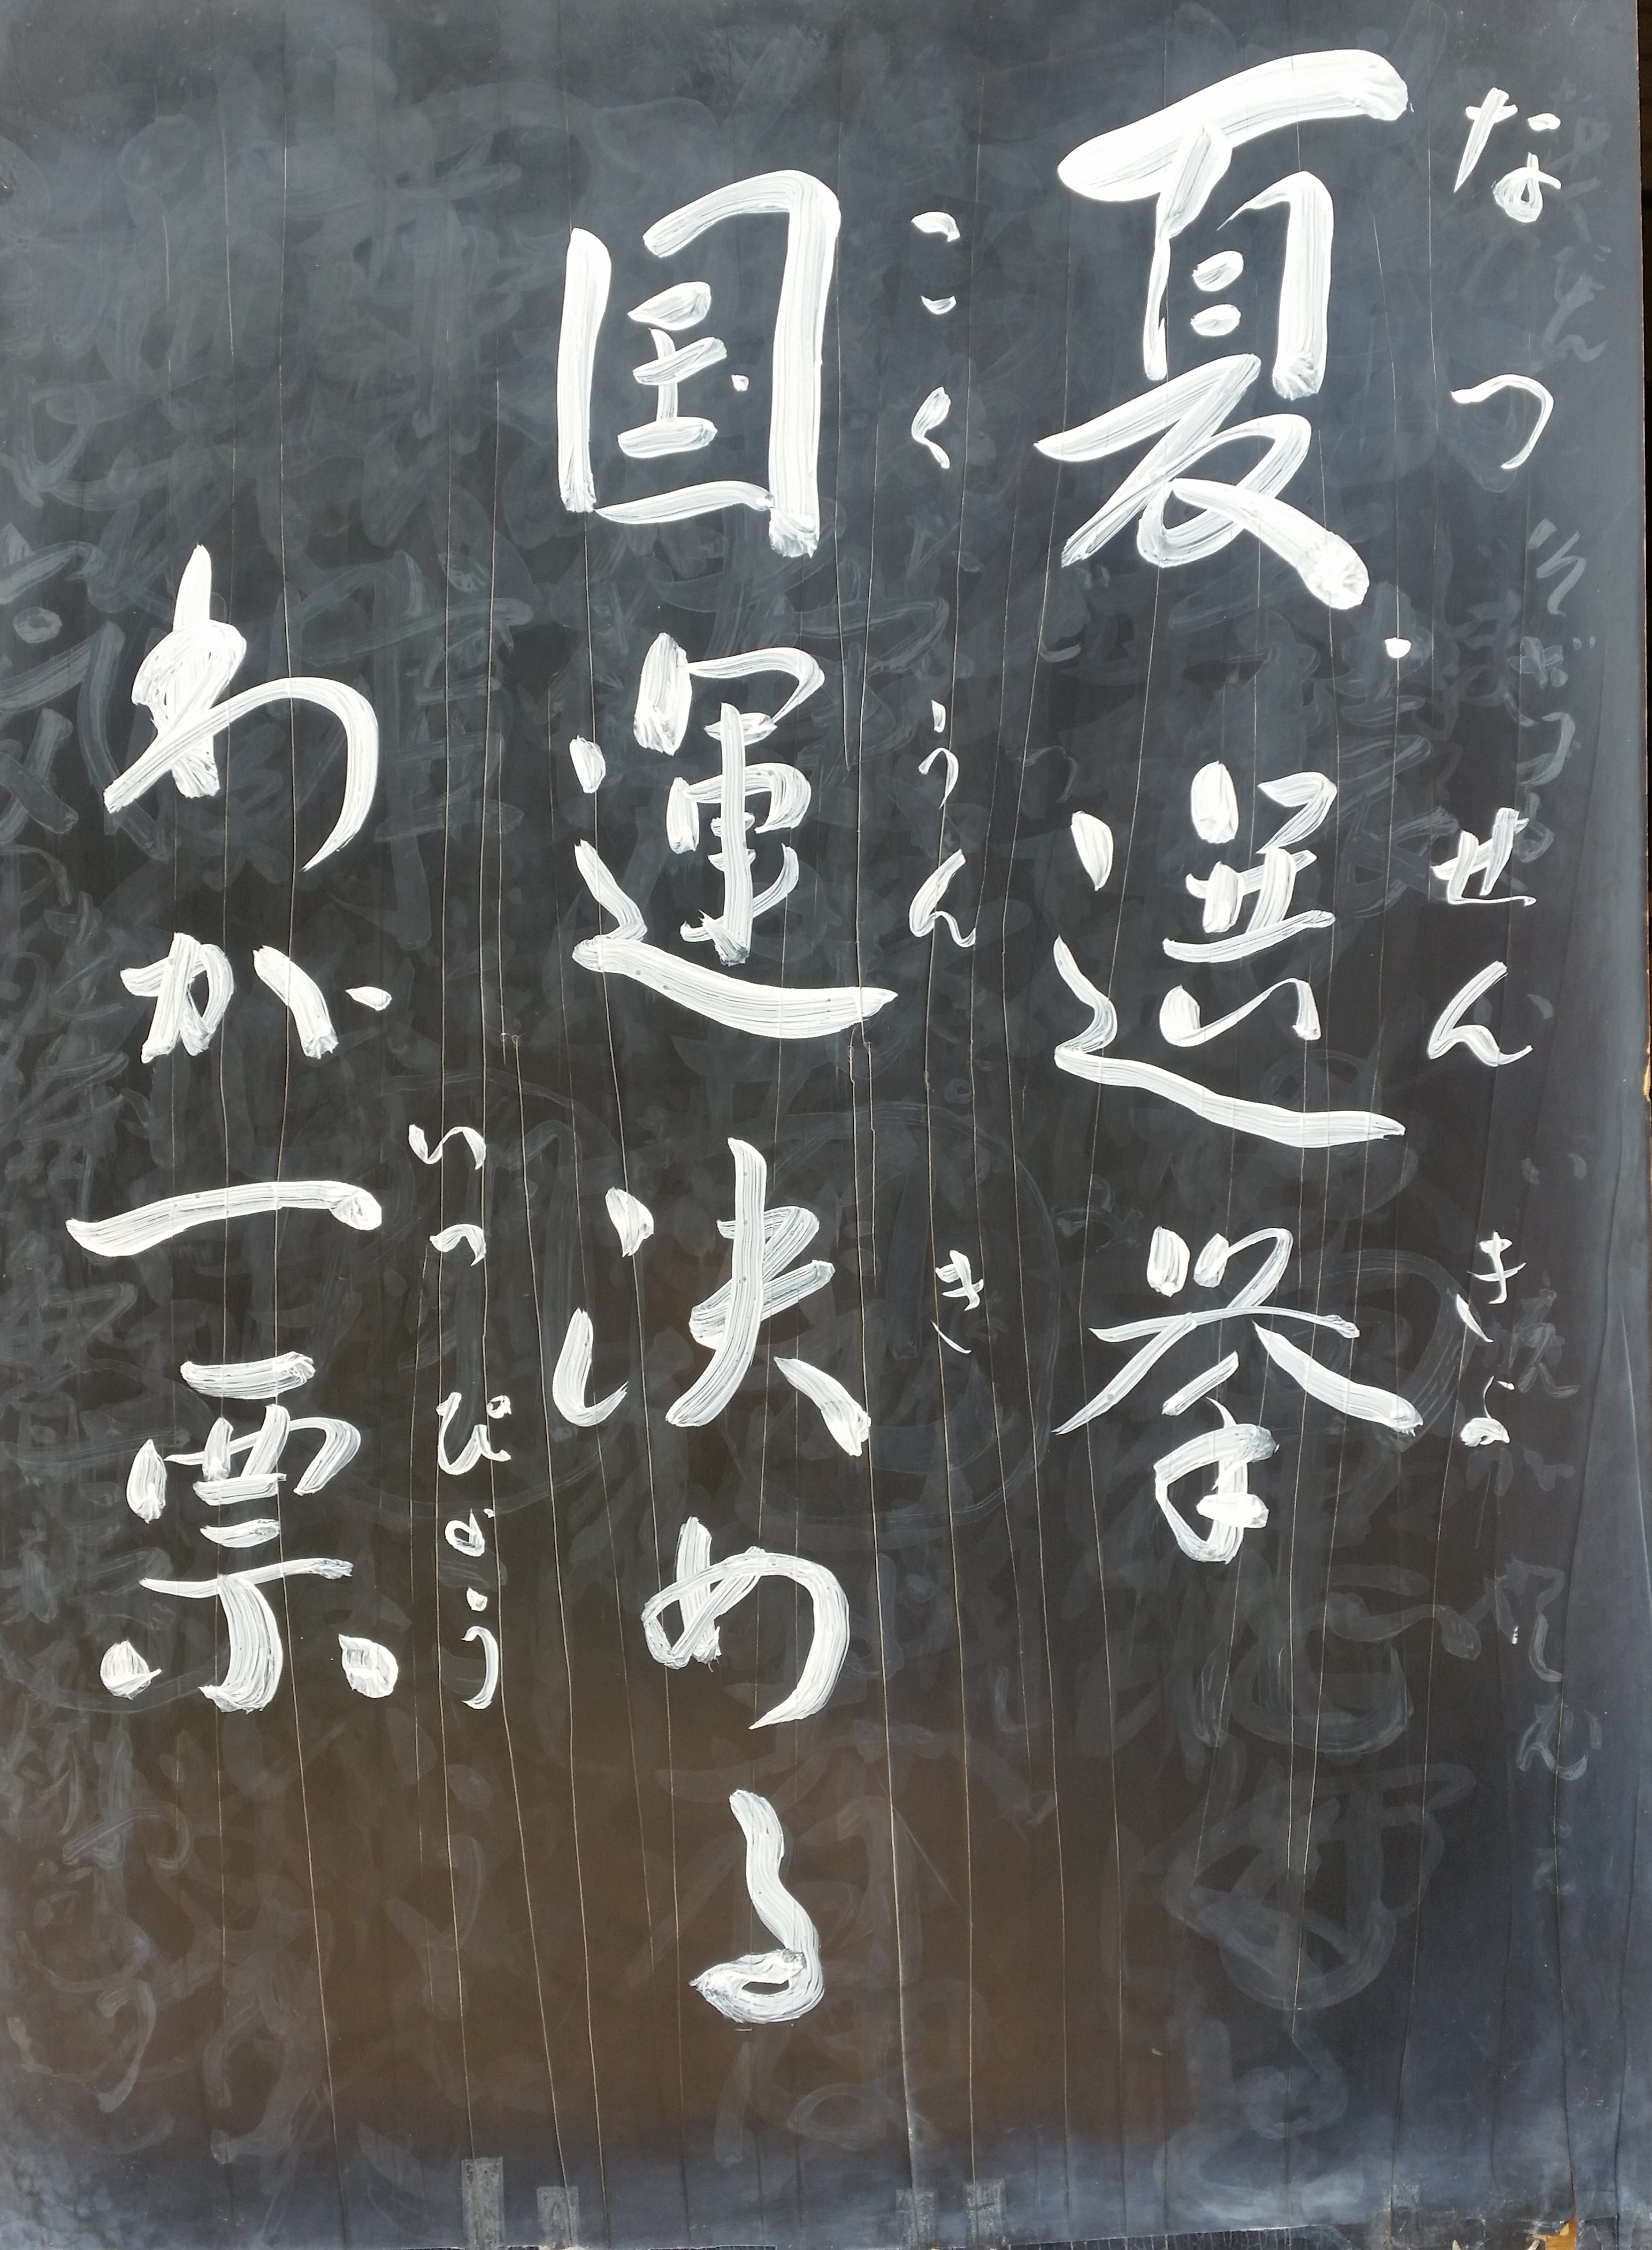 なつ せんきょ
夏選挙
こくうん き
国運決める
いっぴょう
わが一票